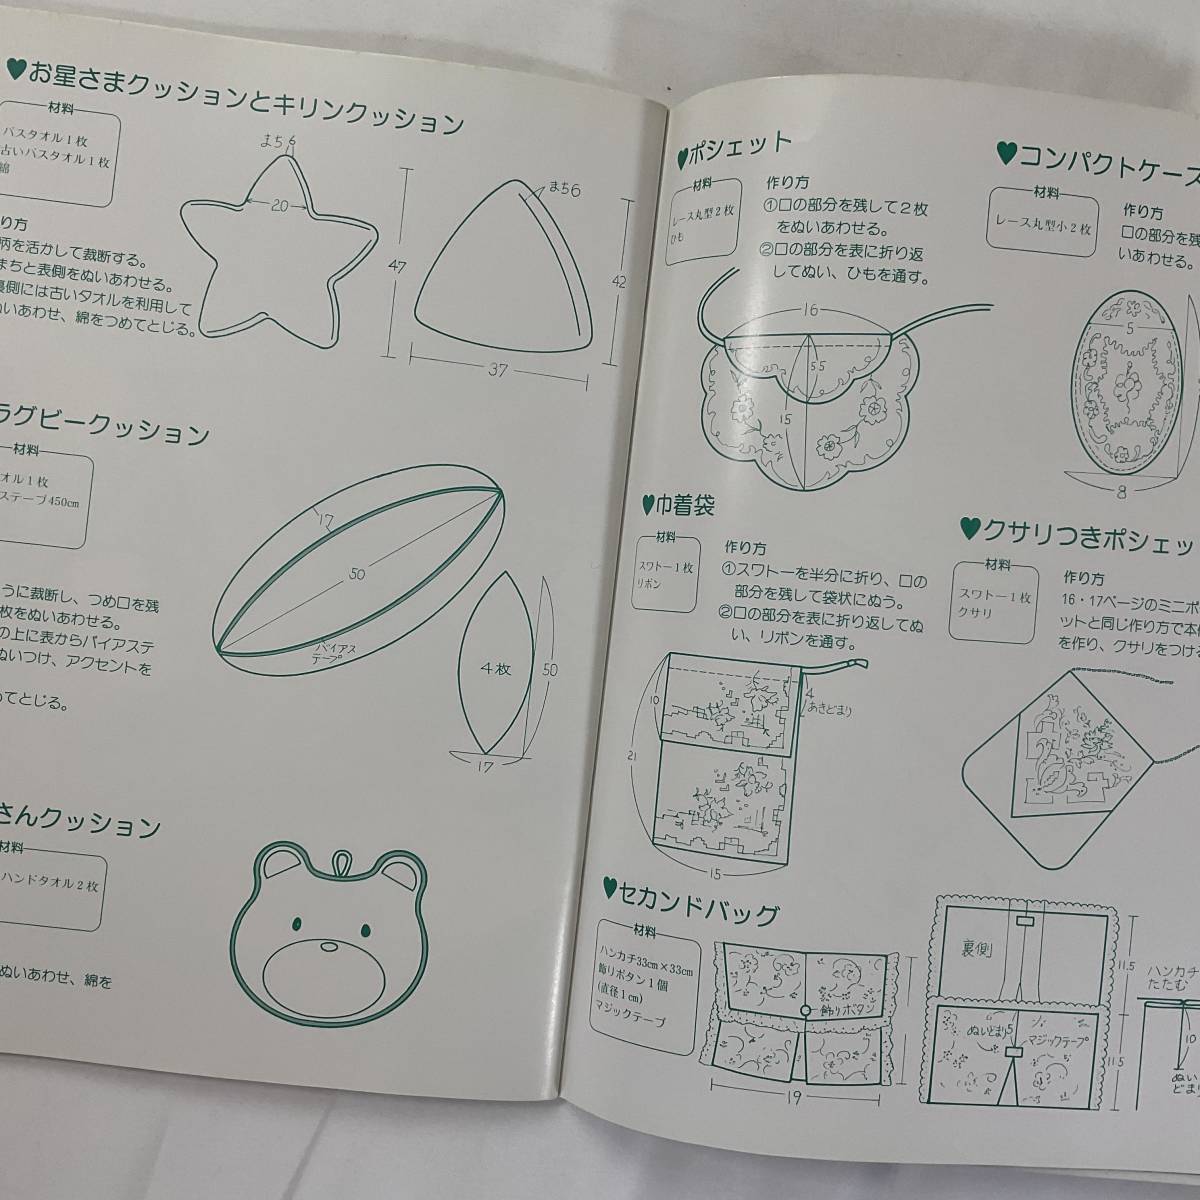 ♥お星さまクッションとキリンクッション
材料
バスタオル1枚
古いバスタオル1枚
綿
り方
柄を活かして裁断する。
まちと表側をぬいあわせる。
裏側には古いタオルを利用して
ぬいあわせ、綿をつめてとじる。
まち6
20
47
まち6
42
37
ラグビークッション
材料
オル1枚
ステープ450cm
うに裁断し、つめ口を残
枚をぬいあわせる。
の上に表からバイアステ
ぬいつけ、アクセントを
めてとじる。
17
50
バイアス
テープ
4枚
50
17
さんクッション
材料
ハンドタオル2枚
ぬいあわせ、綿を
♥ポシェット
材料
レース丸型2枚
ひも
作り方
①口の部分を残して2枚
をぬいあわせる。
②口の部分を表に折り返
してぬい、ひもを通す。
16
5.5
15
♥コンパクトケース
材料
レース丸型小2枚
作り方
口の部分を残
いあわせる。
5
8
♥巾着袋
材料
スワトー1枚
リボン
作り方
①スワトーを半分に折り、口の
部分を残して袋状にぬう。
②口の部分を表に折り返してぬ
い、リボンを通す。
10
4
あきどまり
21
15
♥クサリつきポシェッ
材料
スワトー1枚
クサリ
作り方
16・17ページのミニポ
ットと同じ作り方で本体
を作り、クサリをつける
♥セカンドバッグ
材料
ハンカチ33cm×33cm
飾りボタン1個
(直径1cm)
マジックテープ
飾りボタン
19
裏側
11.5
ぬいどまり5
マジックテープ
11.5
ハンカチ
たたむ
10
ぬい
どまり